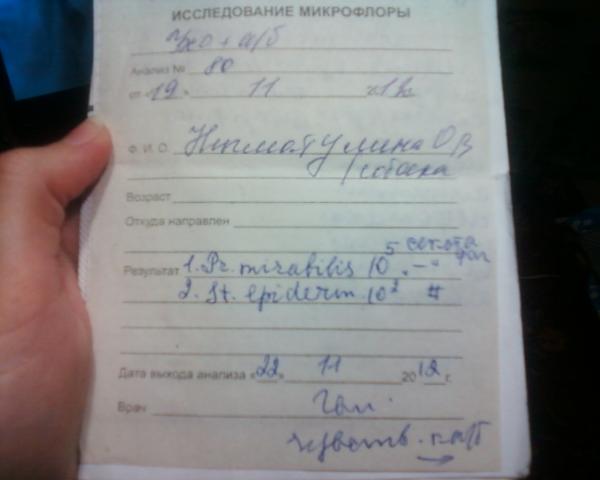 ИССЛЕДОВАНИЕ МИКРОФЛОРЫ
Ухо + а/б
Анализ № 80
от «19» 11
Ф. И. О. Нигматулина О В
(собака
Возраст
Откуда направлен
Результат 1. Pr. mirabilis 10⁵
2. St. epiderm. 10² #
Дата выхода анализа «22» 11 2012 г.
Врач
чувств. к а/б